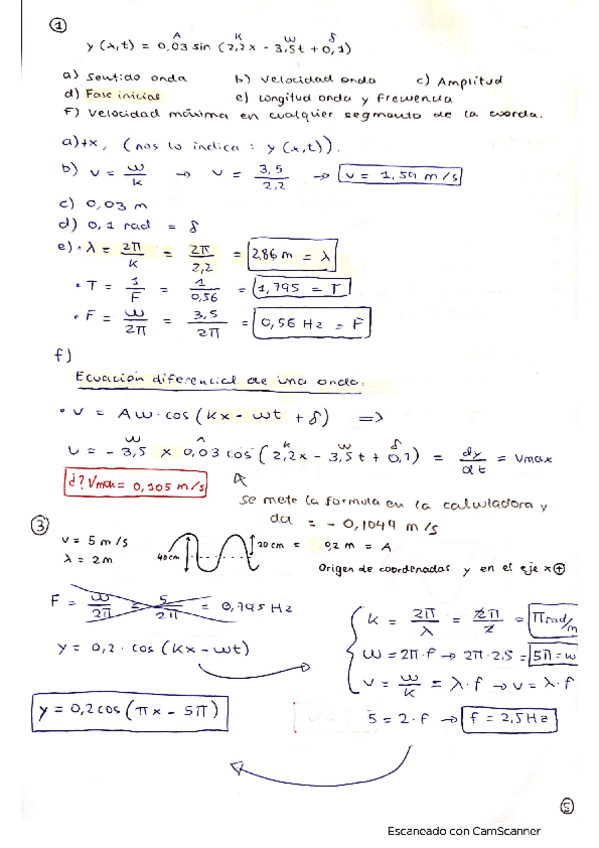 ①
A K w δ
y (x,t) = 0,03 sin (2,2x - 3,5t + 0,1)
a) Sentido onda b) Velocidad onda c) Amplitud
d) Fase inicial e) Longitud onda y frewencia
f) Velocidad máxima en cualquier segmento de la cuerda.
a) +x, (nos lo indica : y (x,t)).
b) v = w/k → v = 3,5/2,2 → v = 1,59 m/s
c) 0,03 m
d) 0,1 rad = δ
e) • λ = 2π/k = 2π/2,2 = 2,86 m = λ
• T = 1/F = 1/0,56 = 1,795 = T
• F = w/2π = 3,5/2π = 0,56 Hz = F
f)
Ecuación diferencial de una onda:
• v = Aw·cos (kx - wt + δ) =>
w A k w δ
v = - 3,5 x 0,03 cos (2,2x - 3,5t + 0,1) = dy/dt = Vmax
d? Vmax = 0,105 m/s
Se mete la formula en la calculadora y
da = - 0,1049 m/s
③
v = 5 m/s 40cm 20 cm = 0,2 m = A
λ = 2m
Origen de coordenadas y en el eje x ⊕
F = w/2π = 5/2π = 0,795 Hz
k = 2π/λ = 2π/2 = π rad/m
y = 0,2 · cos (kx - wt)
w = 2π·f → 2π·2,5 = 5π = w
v = w/k = λ·f → v = λ·f
y = 0,2 cos (πx - 5π)
5 = 2·f → f = 2,5Hz
⑤
Escaneado con CamScanner